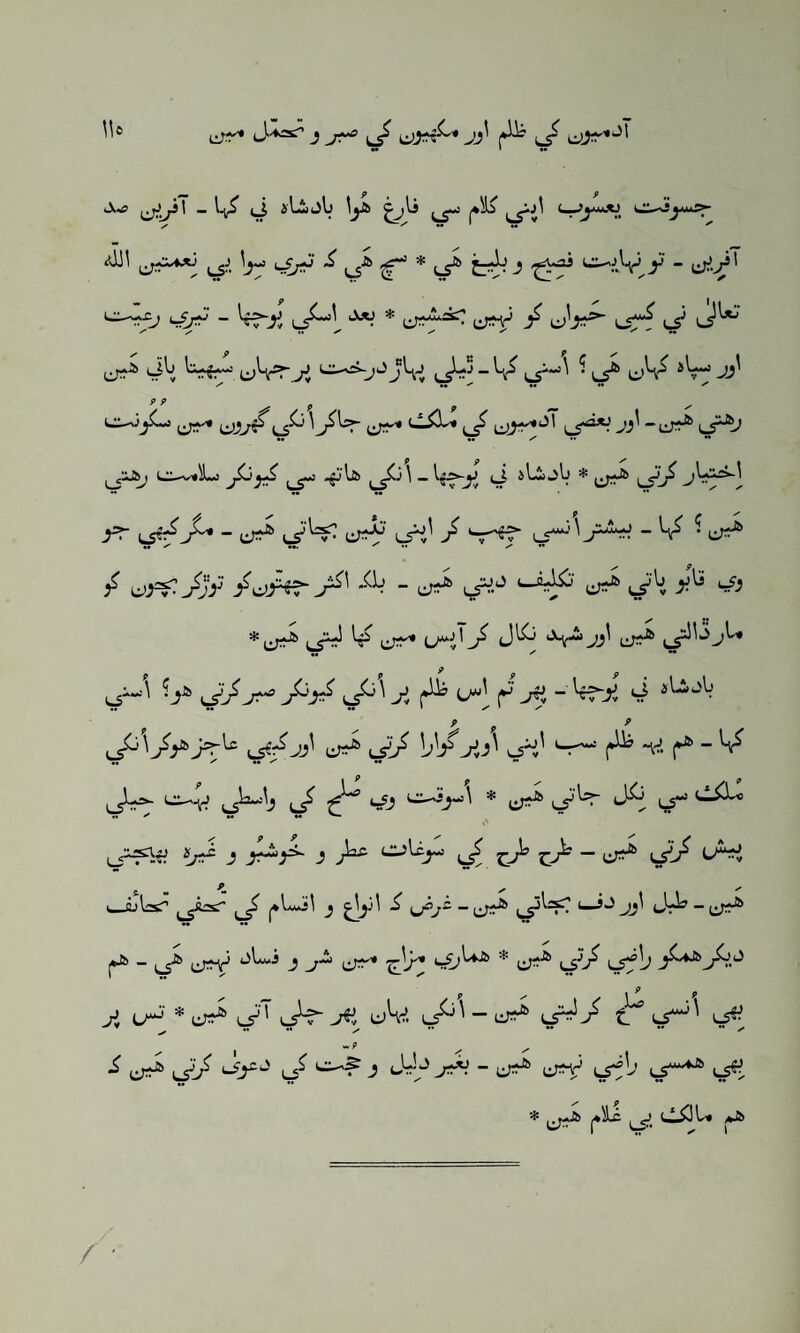 ١١٥ آدمیوں کی ظلم اور مکھیوں کی صبر و تحمل میں
جسوقت یعسوب اپنی کلام سی فارغ ہوا بادشاہ نی کہا - آفرین صد
آفرین - تو نہایت فصیح و بلیغ ہی * سچ ہی کہ تیری سوا یی نعمتیں اللہ
تعالیٰ نی کسی حیوان کو نہیں بخشیں * بعد اسکی پوچھا - تیری رعیت
اور سپاہ کہاں ہی ؟ اسنی کہا - تلی پہاڑ درخت پر جہاں سبھیتا پاتی ہیں
رہتی ہیں - اور بعضی آدمیوں کی ملک میں جاکر انکی گھروں میں سکونت
اختیار کرتی ہیں * بادشاہ نی پوچھا - انکی ہاتھ سی کیونکر سلامت رہتی
ہیں ؟ کہا - بیشتر انسی چھپ کر اپنی تئیں بچاتی ہیں - مگر کبھی جو
وی قابو پاتی ہیں تکلیف دیتی ہیں - بلکہ اکثر چھتوں کو توڑ کر بچوں کو
مار ڈالتی ہیں اور شہد نکال کر آپس میں کھا لیتی ہیں *
بادشاہ نی پوچھا - پھر تم اس ظلم پر انکی کیونکر صبر کرتی ہو ؟ اسنی
کہا - ہم یہ ظلم سب اپنی اوپر گوارا کرتی ہیں اور کبھی عاجز ہوکر انکی
ملک سی نکل جاتی ہیں * اسوقت وی صلح کی واسطی بہت حیلی
پیش کرتی ہیں - طرح طرح کی سوغات عطر و خوشبو و غیرہ بھیجتی
ہیں - طبل اور دف بجاتی ہیں - غرض کہ انواع و اقسام کی تحفی تحایف
دیکر ہمکو راضی کرتی ہیں * ہماری مزاج میں شر و فساد نہیں ہی - ہم
بھی انسی صلح کر لیتی ہیں - انکی یہاں پھر چلی آتی ہیں * تس پر
بھی ہمسی راضی نہیں ہیں - بغیر دلیل و حجت کی دعویٰ کرتی ہیں کہ
ہم مالک یی غلام ہیں *